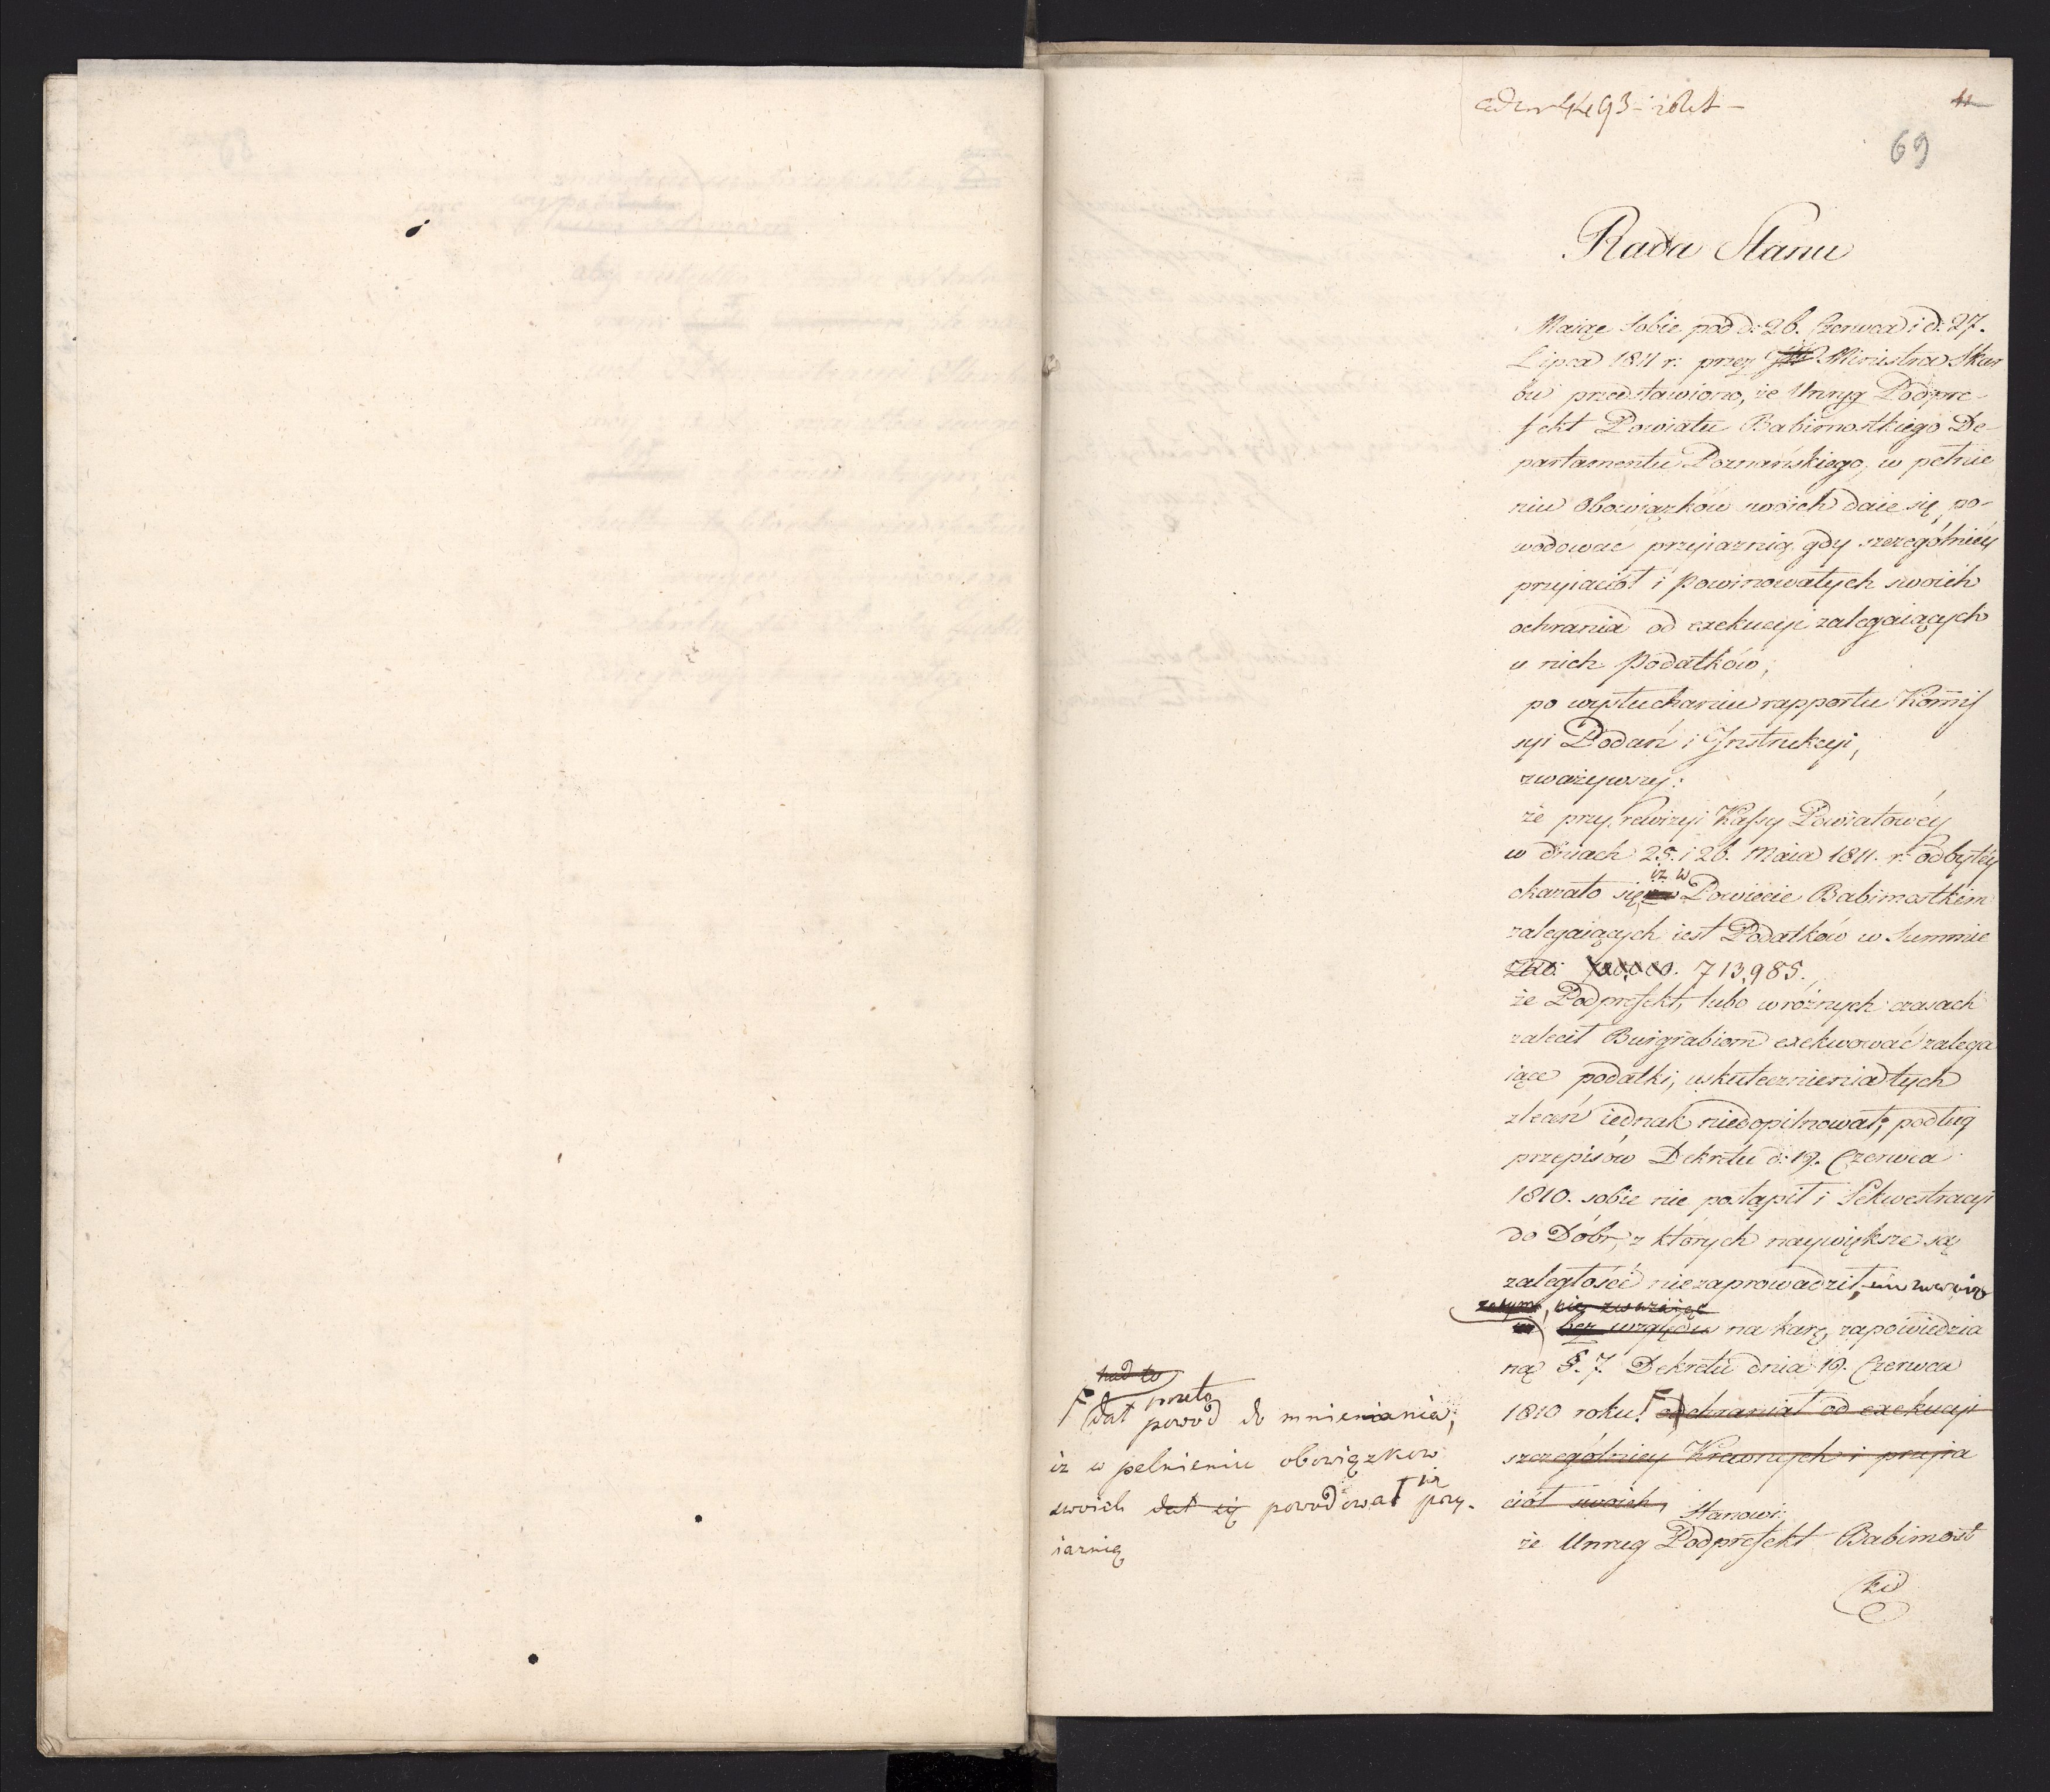 ad nr 4493
11
69
Rada Stanu
Maiąc sobie pod d: 26. Czerwca i d: 27.
Lipca 1811 r: przez JW Ministra Skar
bu przedstawiono, że Unrug Podpre-
fekt Powiatu Babimostkiego De-
partamentu Poznańskiego, w pełnie
niu Obowiązków swoich daie się po-
wodować przyiaznią, gdy szczególniéy
przyiaciół i Powinowatych swoich
ochrania od exekucyi zalegaiących
u nich Podatków,
po wysłuchaniu rapportu Kom̃is
syi Podań i Jnstrukcyi,
zważywszy:
że przy rewizyi Kassy Powiatowéy
w dniach 25. i 26. Maia 1811. r: odbytéy
iż w
okazało się w Powiecie Babimostkim
zalegaiących iest Podatków w Summie
713,985.
że Podprefekt, lubo w różnych czasach
zalecił Burgrabiom exekwować zalega
iące podatki, uskutecznienia tych
zleceń iednak niedopilnował, podług
przepisów Dekretu d: 19. Czerwca
1810. sobie nie postąpił i Sekwestracyi
do Dóbr, z których naywiększe są
zaległości niezaprowadził,
zatym, nie zważaiąc
bez względu na karę, zapowiedzia
ną §. 7. Dekretu dnia 19. Czerwca
1810 roku. F ochraniał od exekucyi
szczególniéy Krewnych i przyia
ciół swoich,
Stanowi:
że Unrug Podprefekt Babimost
ki
nad to
przeto
F dał powód do mniemania,
iż w pełnieniu obowiązkow
się
swoich dał się powodował przy-
iaznią